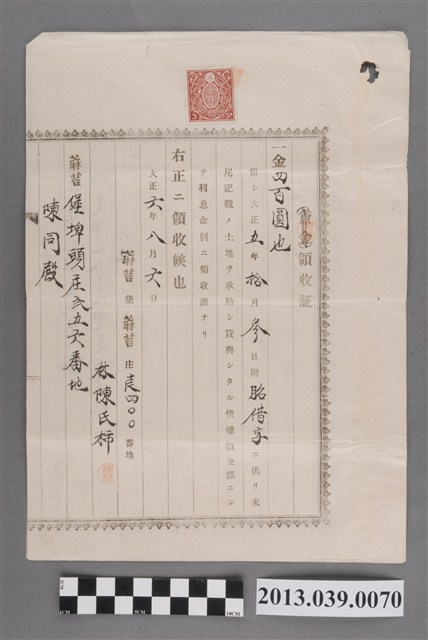 領收証
一金四百圓也
但シ大正五年拾月參日附胎借字ニ依リ末
尾記載ノ土地ヲ承胎シ貸與シタル債權額全部ニシ
テ利息金剖ニ領收濟ナリ
右正ニ領收候也
大正六年八月六日
蔴荳堡蔴荳庄壱四〇〇番地
林陳氏柿
蔴荳堡埤頭庄弍五六番地
陳同殿
5CM
10CM
2013.039.0070